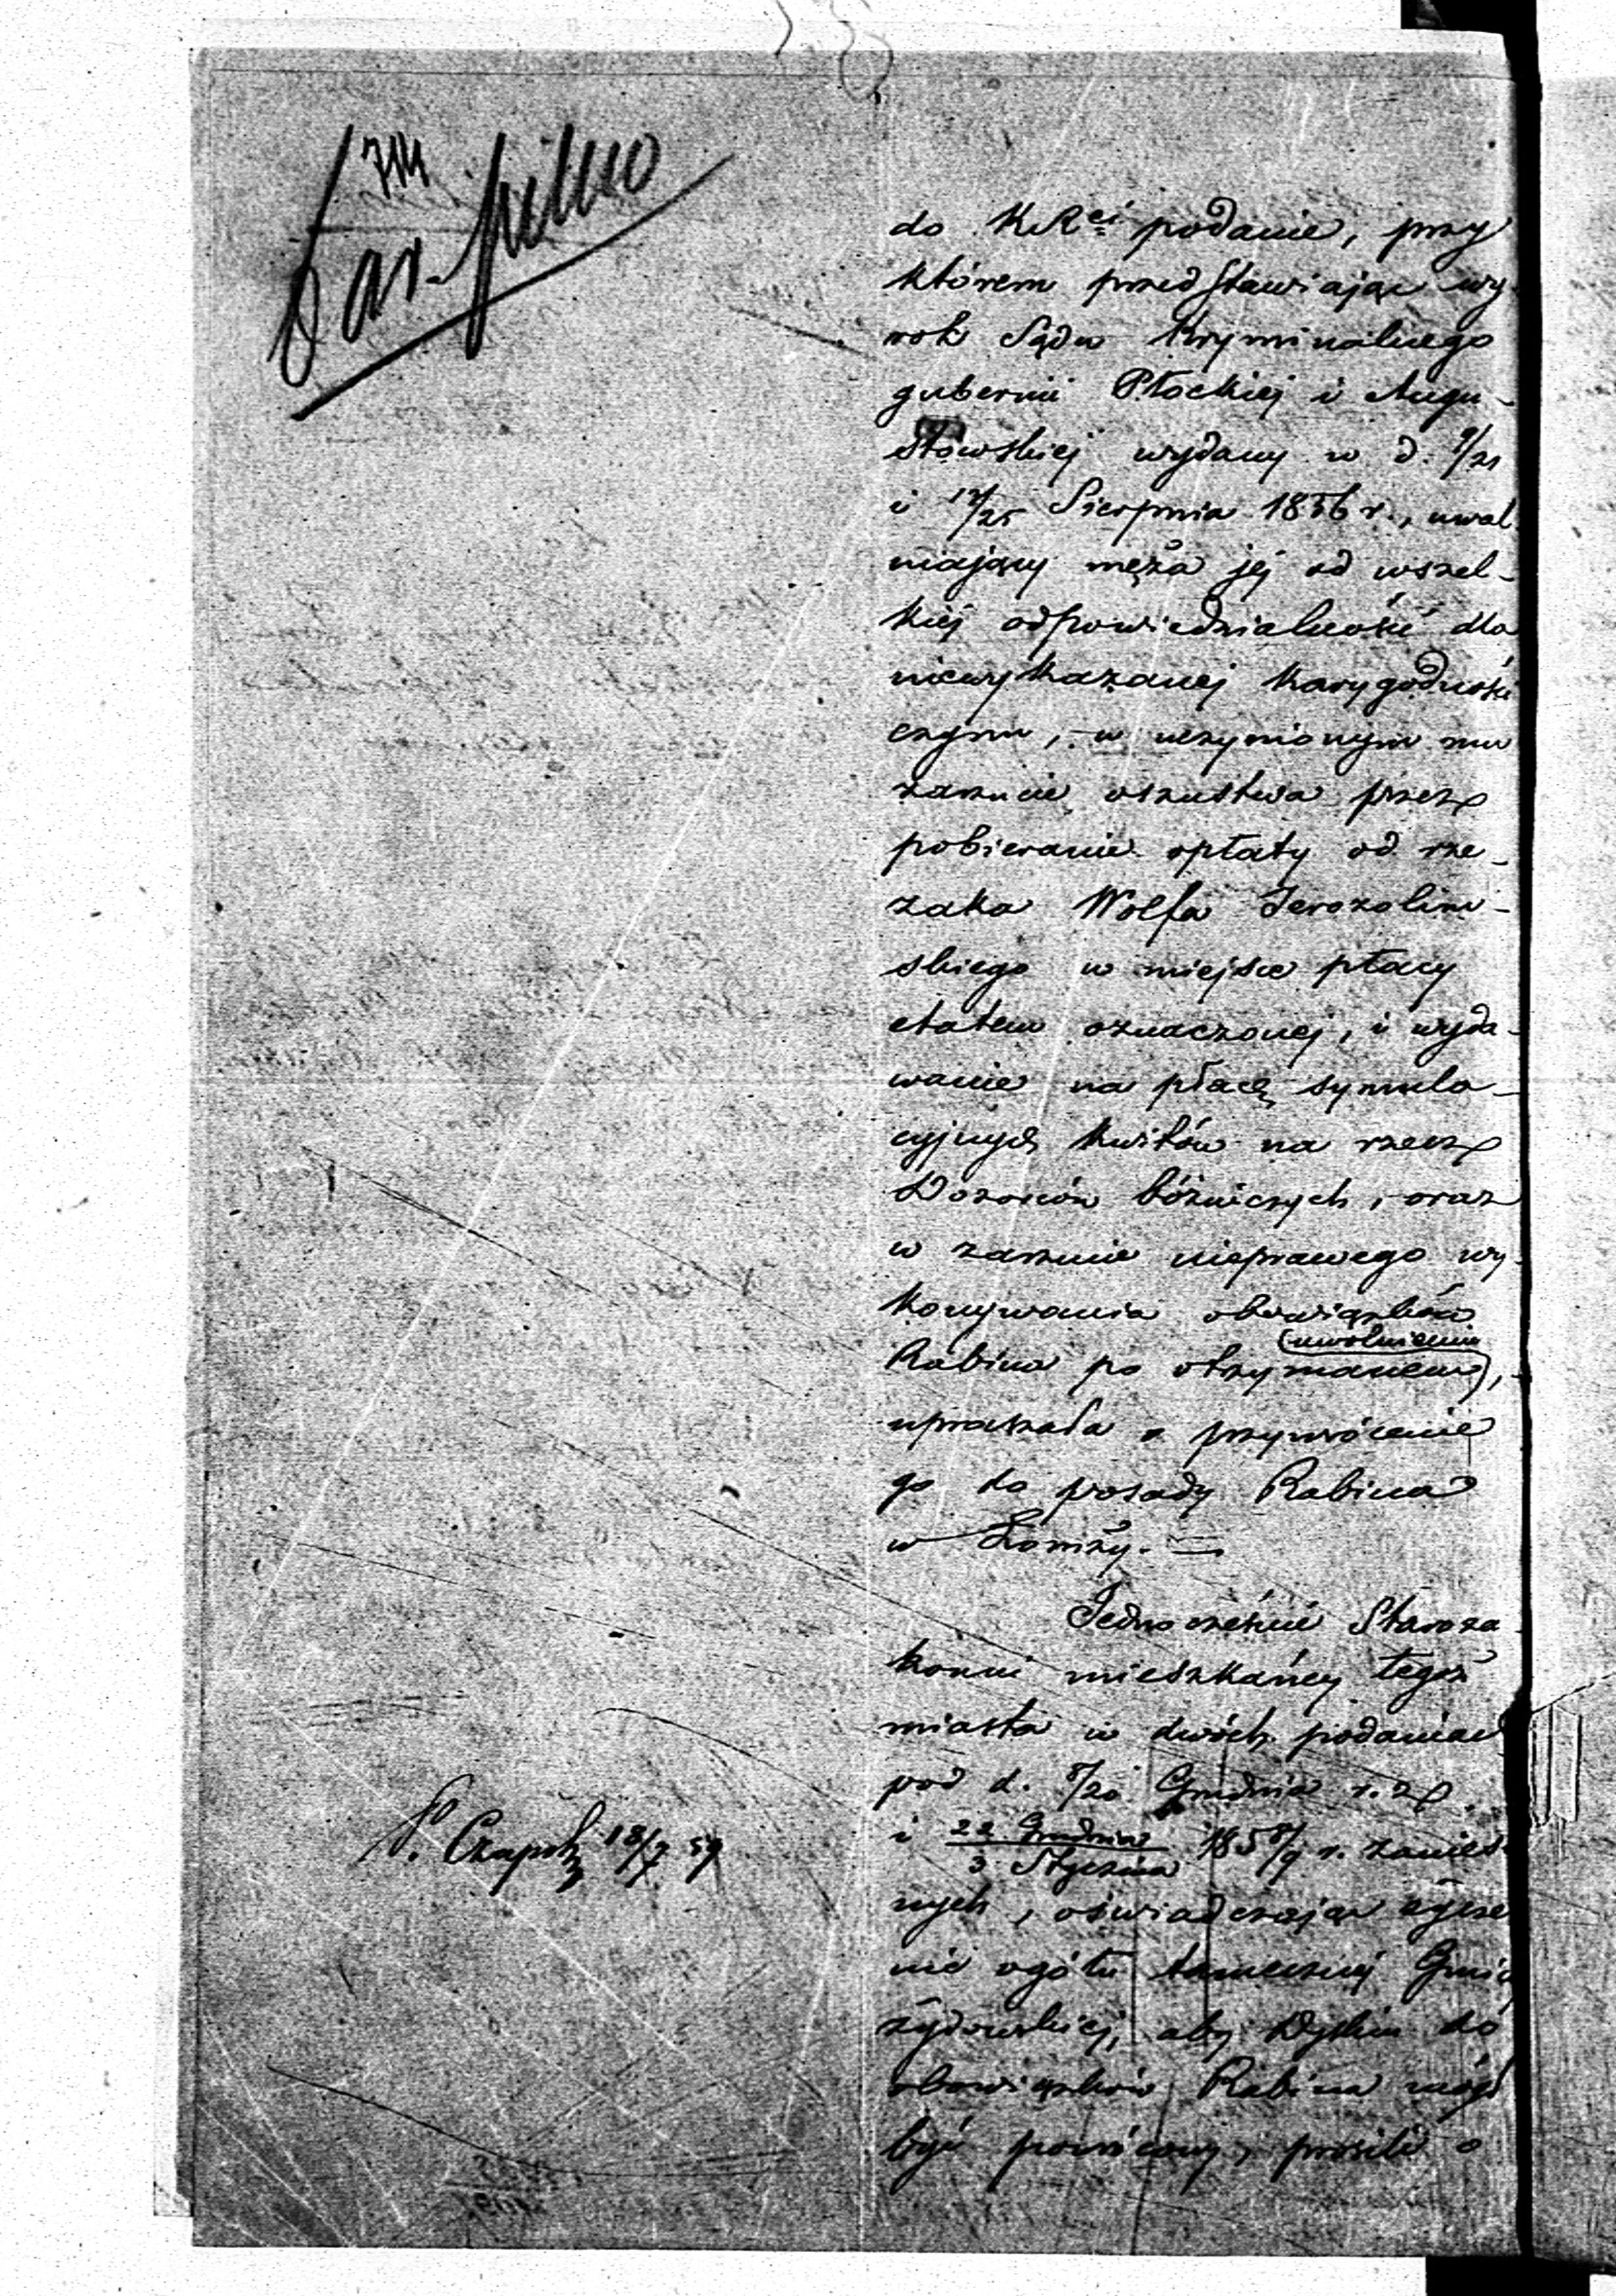 bar. pilno
do KRcí podanie, przy
którem przedstawiając wy-
rok Sądu Kryminalnego
gubernii Płockiej i Augu-
stowskiej wydany w d. 9/21
i 13/25 Sierpnia 1856 r., uwal-
niający męża jej od wszel-
kiéj odpowiedzialności dla
niewykazanej karygodności
czynu, w uczynionym mu
zarzucie oszustwa przez
pobieranie opłaty od rze-
zaka Wolfa Jerozolim-
skiego w miejsce płacy
etatem oznaczonej, i wyda-
wanie na płacę symula-
cyjnych kwitów na rzecz
Dozorców bóżniczych, oraz
w zarzucie nieprawego wy-
konywania obowiązków
(uwolnieniu
Rabina po otrzymanem),
upraszała o przywrócenie
go do posady Rabina
w Łomży. =
Jednocześnie Staroza-
konni mieszkańcy tegoż
miasta w dwóch podaniach
pod d. 8/20 Grudnia r. z.
i 22 Grudnia/3 Stycznia 1858/9 r. zanies-
nych, oświadczając życze-
nie ogółu tamecznéj Gminy
żydowskiej, aby Dyskin do
obowiązków Rabina mógł
być powrócony, prosili o
18/7 59